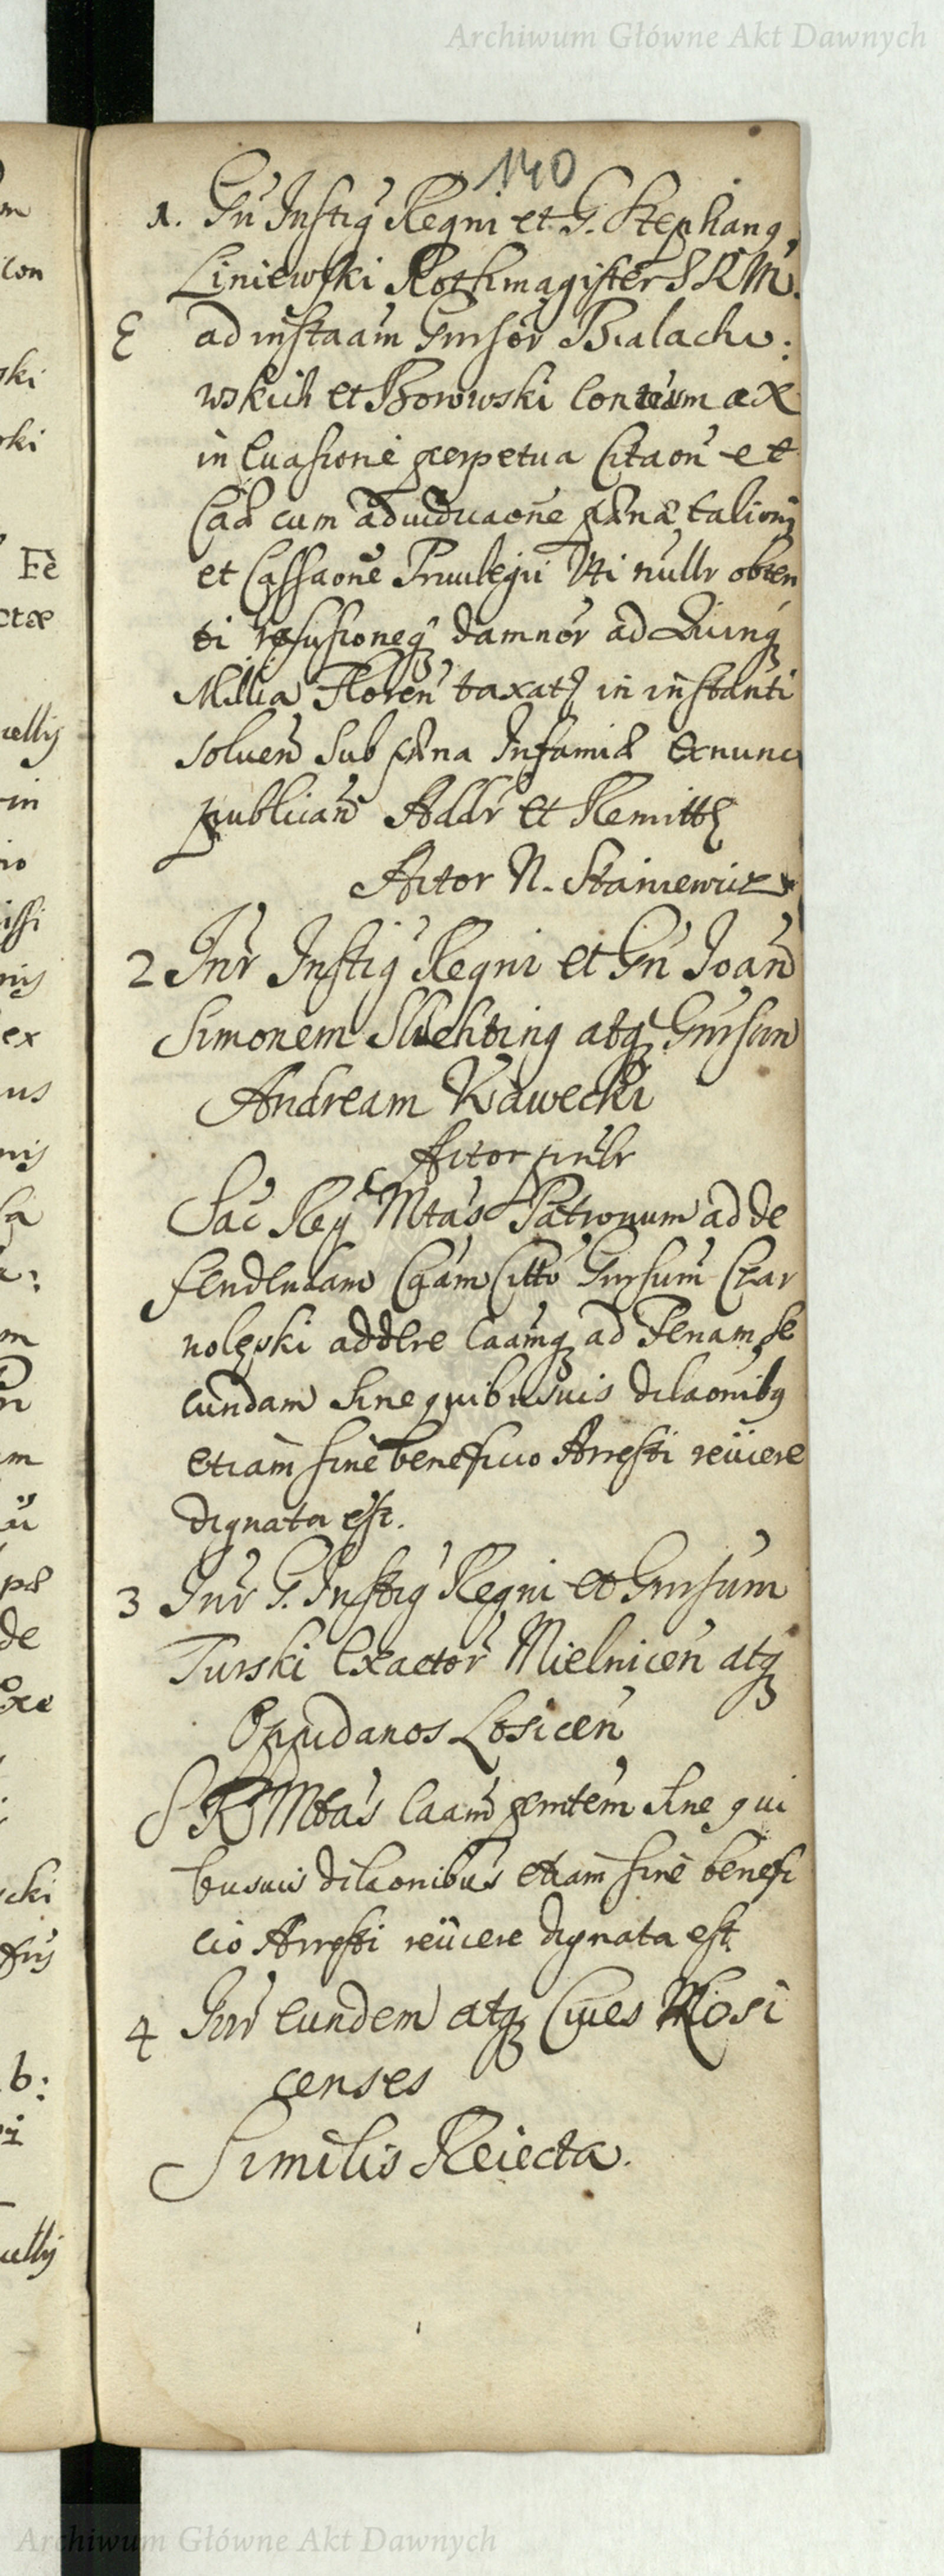 Archiwum Główne Akt Dawnych
140
1. Gn Instig Regni et G. Stephang
Liniewski Rothmagister S R M.
E ad instaam Gnrsor Bialacho:
wskich et Borowski Contum ex
in Euasione perpetua Citaon et
Caa cum adiudicaone pænæ talionis
et Cassaone Priuilegii Uti nullr obten
ti refusioneq damnor ad Quinq
Millia Floren taxat in instanti
soluen sub pæna Infamiæ exnunc
publican Addr et Remitt
Actor N. Staniewicz
2 Intr Instig Regni et Gn Joan
Simonem Slichting atq Gnrsum
Andream Kawecki
Actor
Sac Reg Mtas Patronum ad de
fendendam Caam Citto Gnrsum Czar
nolęski addere Caamq ad Penam se
cundam sine quibusuis dilaonibq
etiam sine beneficio Arresti reiicere
dignata est.
3 Intr G. Instig Regni et Gnrsum
Turski Exactor Mielnicen atq
Oppidanos Łosicen
S R Mtas Caam pntem sine qui
busuis dilaonibus etiam sine benefi
cio Arresti reiicere dignata est
4 Intr eundem atq Ciues Mosi
censes
Similis Reiecta.
Archiwum Główne Akt Dawnych